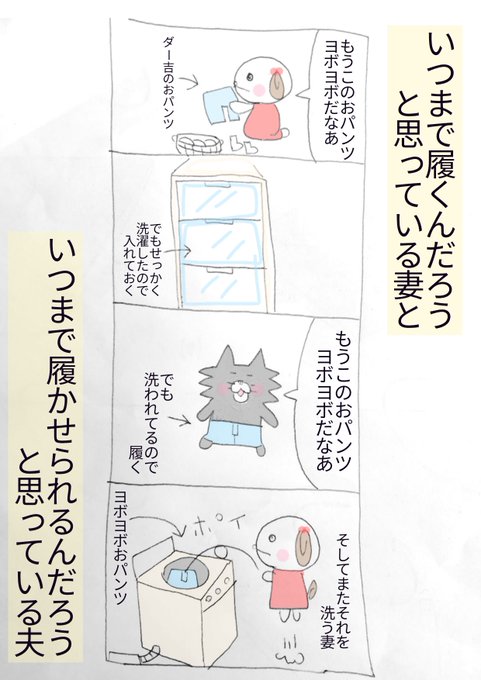 いつまで履くんだろう
と思っている妻と
もうこのおパンツ
ヨボヨボだなあ
ダー吉のおパンツ
でもせっかく
洗濯したので
入れておく
もうこのおパンツ
ヨボヨボだなあ
でも
洗われてるので
履く
そしてまたそれを
洗う妻
ポイ
ヨボヨボおパンツ
いつまで履かせられるんだろう
と思っている夫